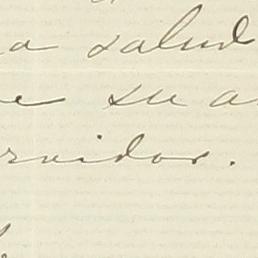 a salud
e su a
rvidor.